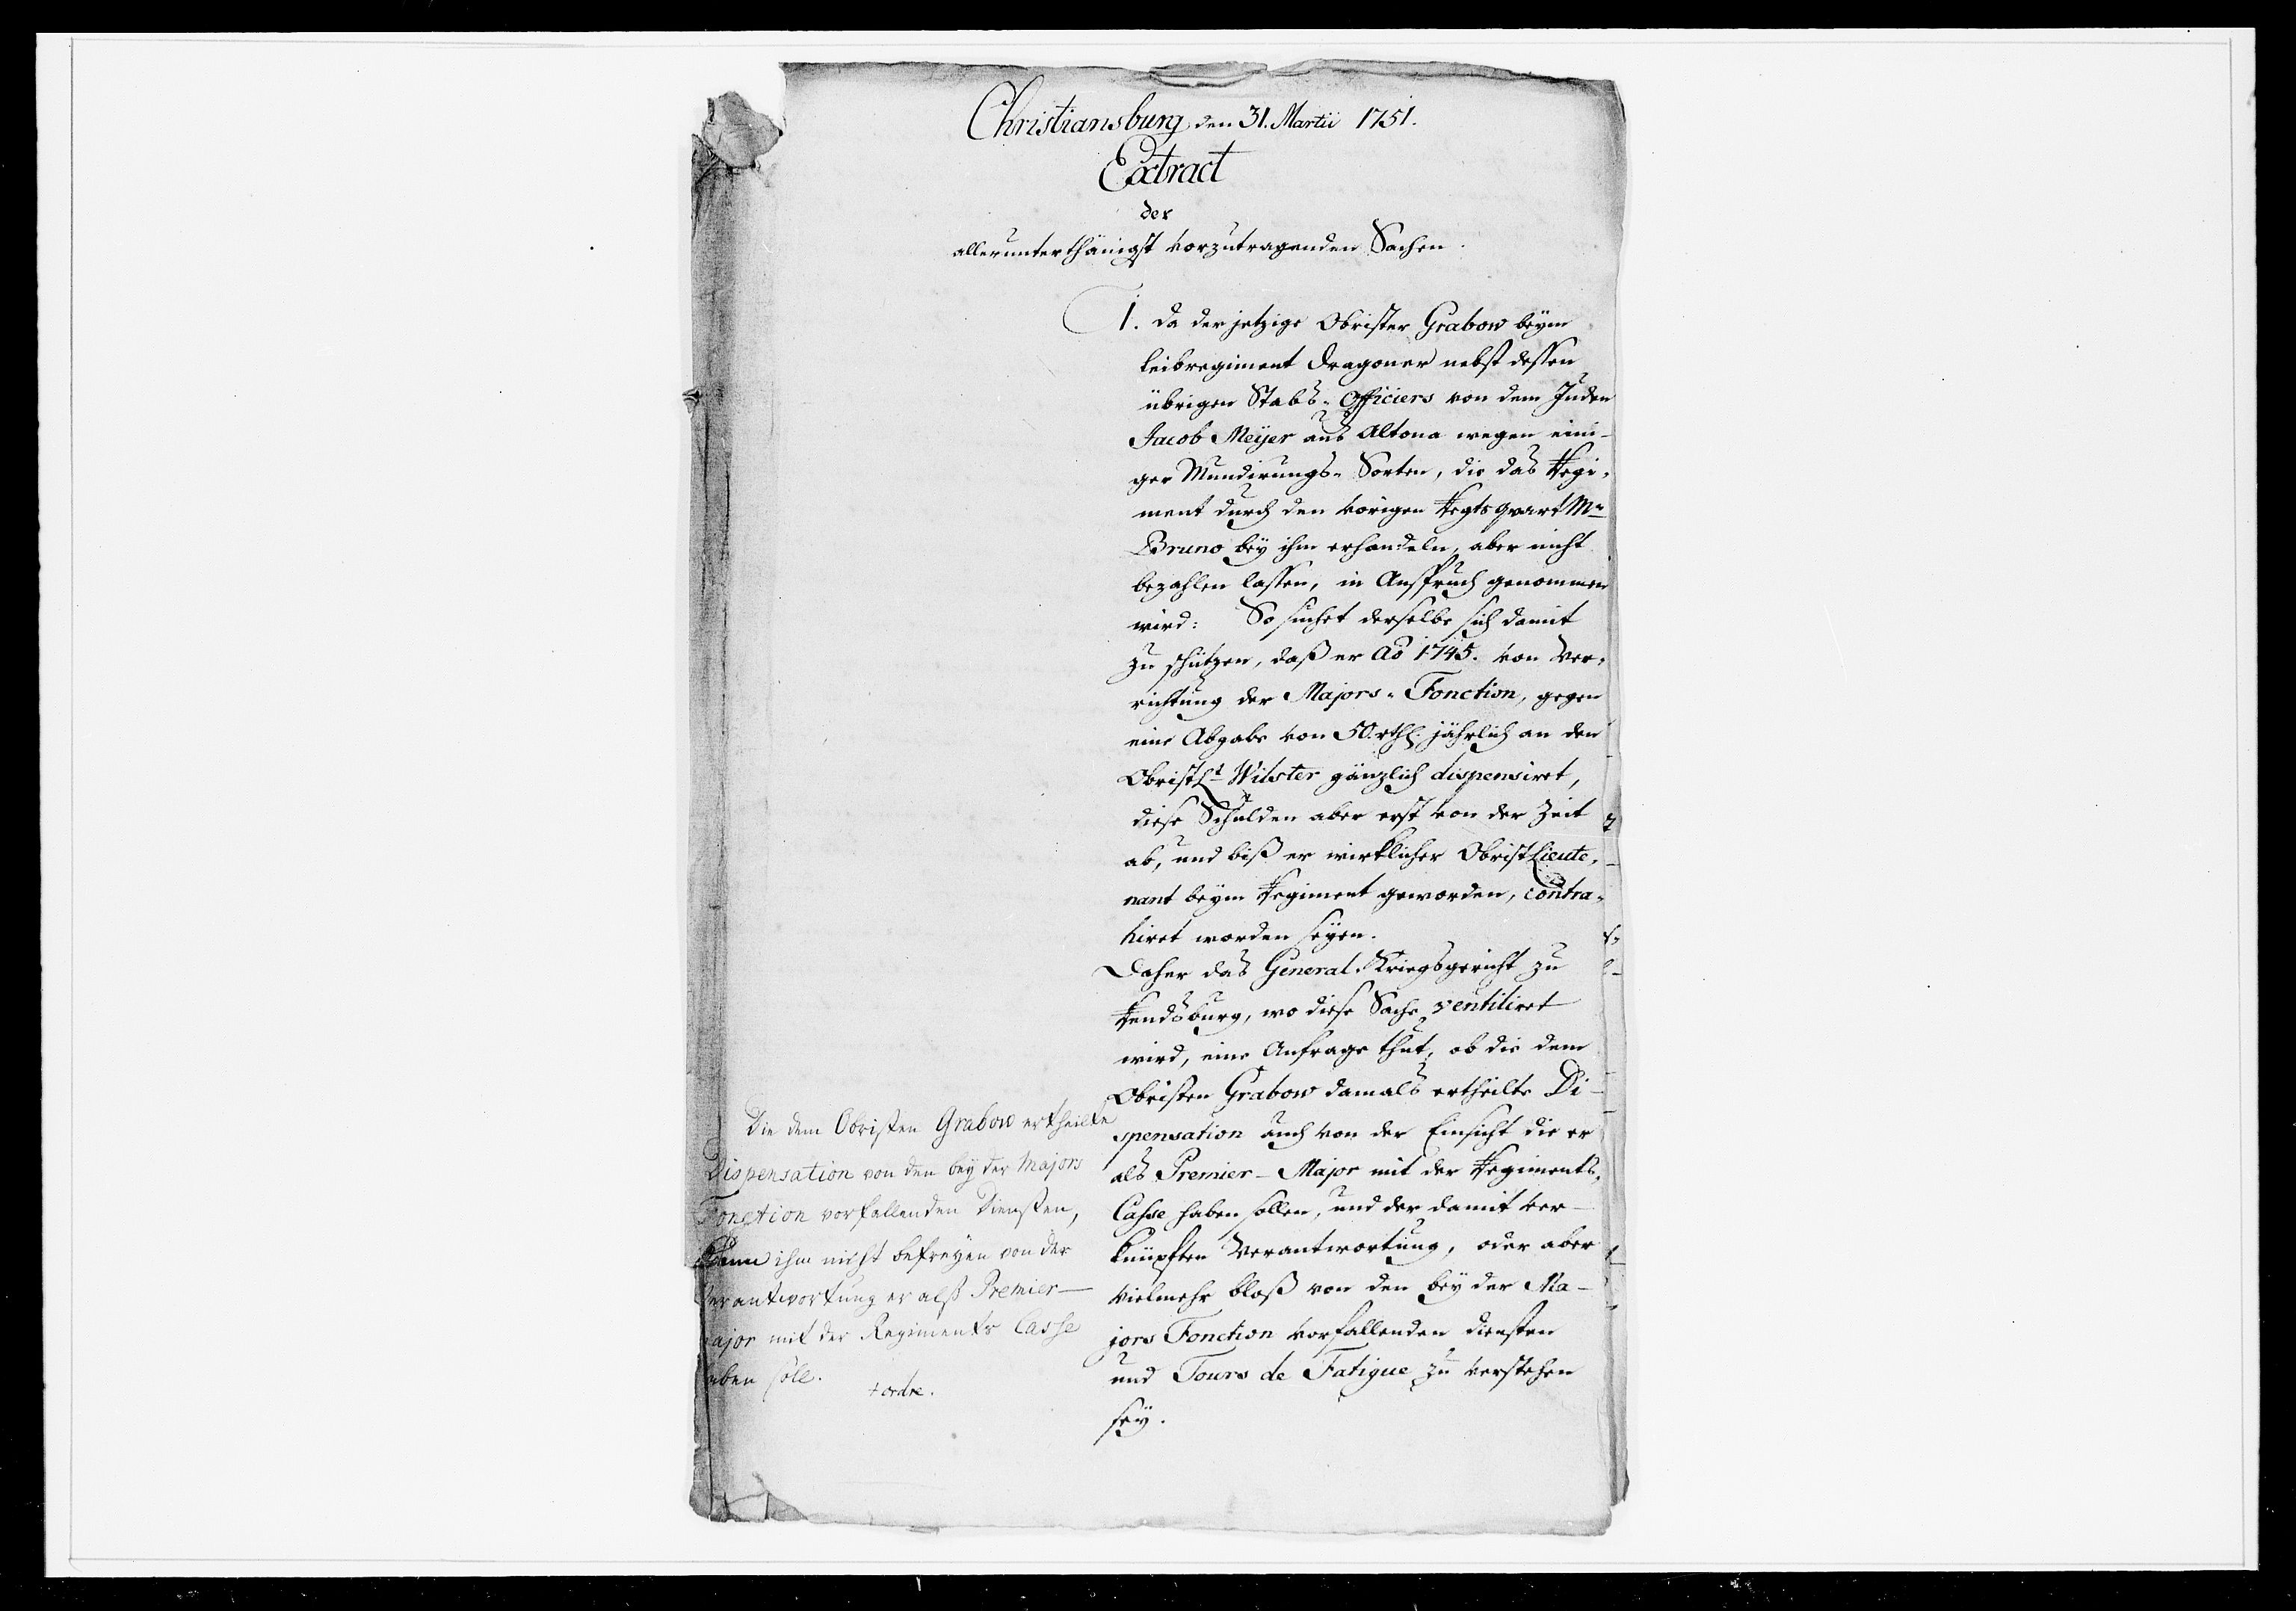 Christiansburg den 31. Martii 1751.
Extract
der
allerunterthänigst vorzutragenden Sachen.
1. Da der jetzige Obrister Grabow beym
Leibregiment Dragoner nebst dessen
übrigen Stabs-Officiers von dem Juden
Jacob Meÿer aus Altona wegen eini-
ger Mundirungs-Sorten, die das Regi-
ment durch den vorigen RegtsquartMr
Bruno beÿ ihm erhandeln, aber nicht
bezahlen lassen, in Anspruch genommen
wird: So suchet derselbe sich damit
zu schützen, daß er Aō 1745. von Ver-
richtung der Majors-Fonction, gegen
eine Abgabe von 50. rthl. jährlich an den
ObristLt Wilster gänzlich dispensiret,
diese Schulden aber erst von der Zeit
ab, und biß er wirklicher ObristLieute-
nant beym Regiment geworden, contra-
hiret worden seÿen.
Daher das General-Kriegsgericht zu
Rendsburg, wo diese Sache ventiliret
wird, eine Anfrage thut, ob die dem
Obristen Grabow damals ertheilte Di-
spensation auch von der Einsicht die er
als Premier-Major mit der Regiments-
Casse haben sollen, und der damit ver-
knüpften Verantwortung, oder aber
vielmehr bloß von den beÿ der Ma-
jors Fonction vorfallenden Diensten
und Tours de Fatigue zu verstehen
seÿ.
Die dem Obristen Grabow ertheilte
Dispensation von den beÿ der Majors
Fonction vorfallenden Diensten,
Kann ihm nicht befreÿen von der
Verantwortung er alß Premier-
ajor mit der Regiments Casse
aben soll.
+ ordre.